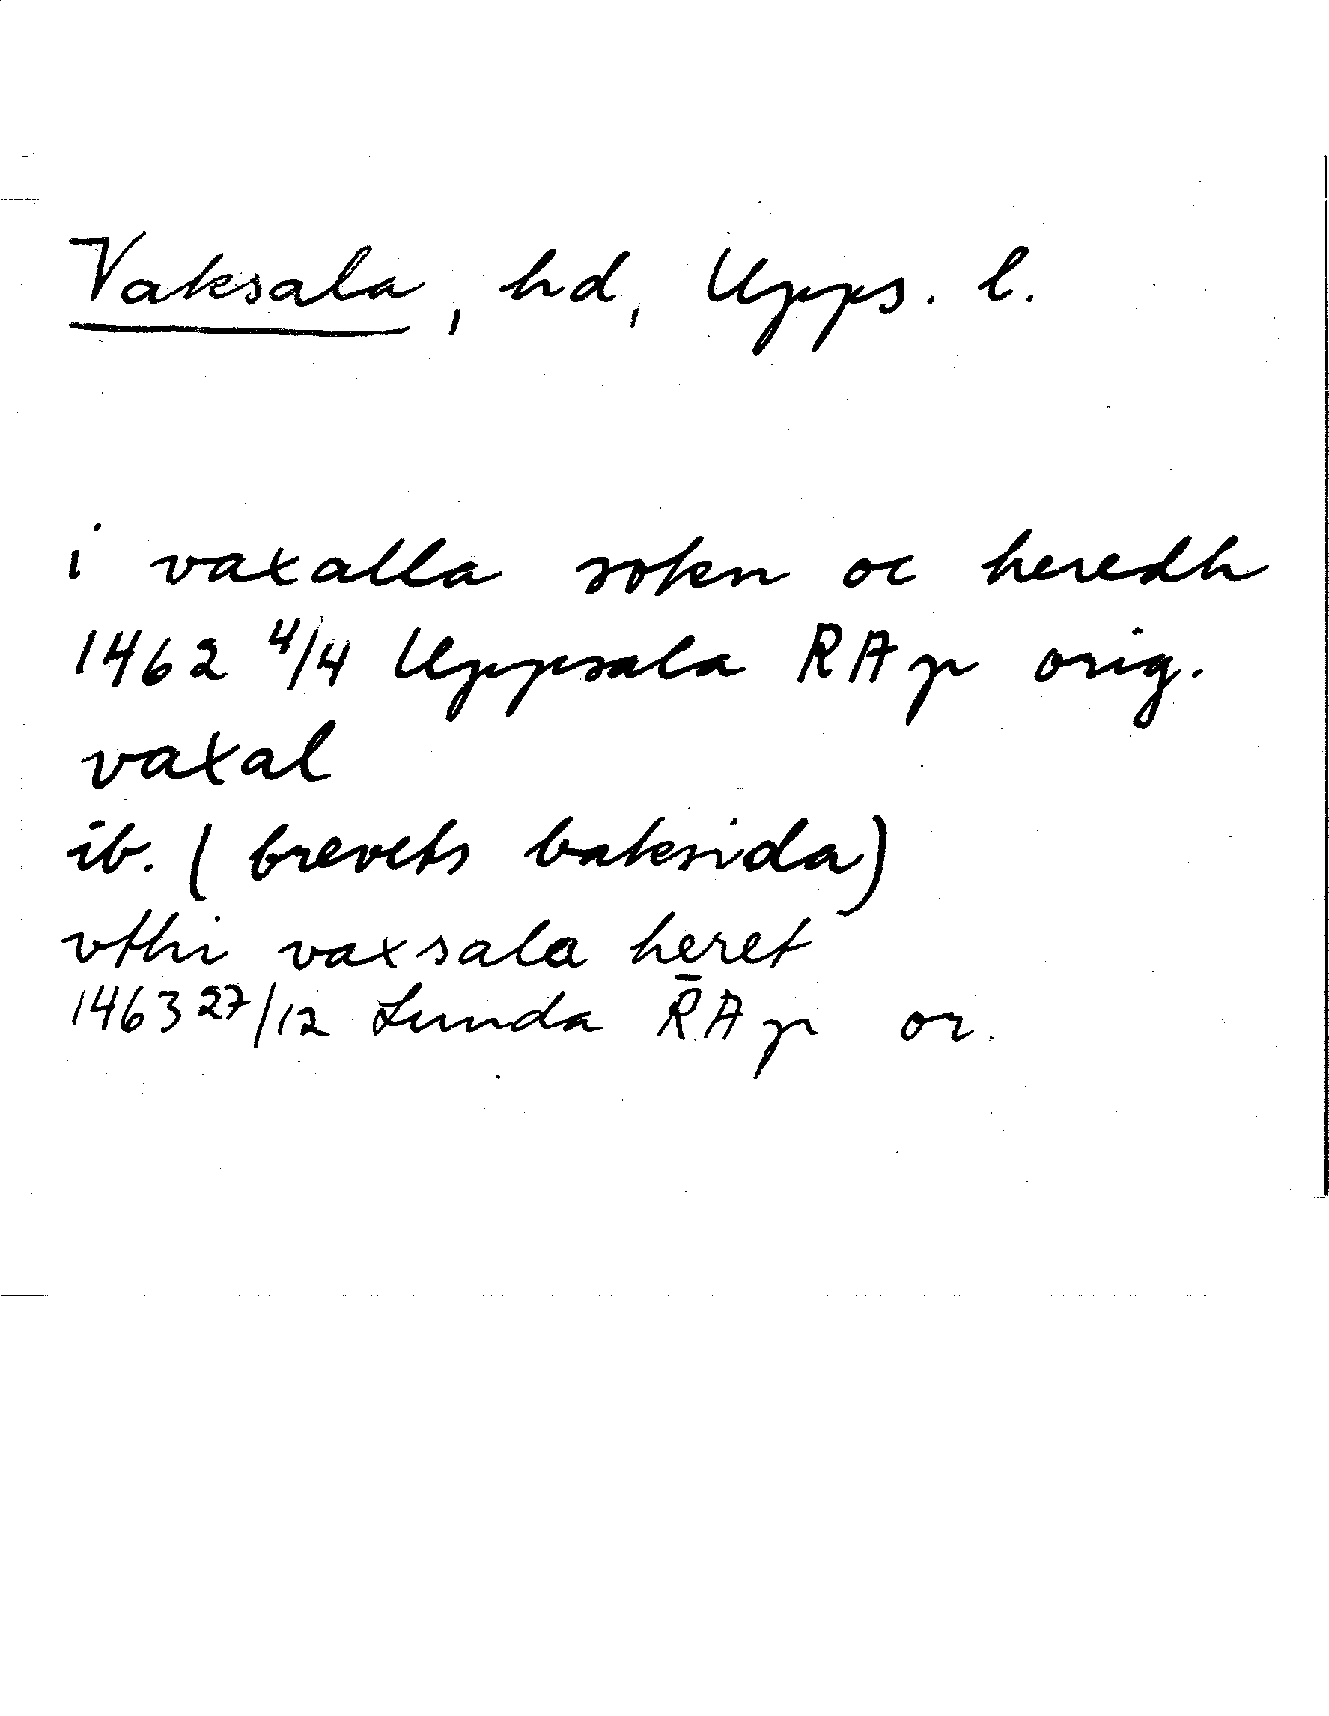 Vaksala, hd, Upps. l.
i vaxalla sokn oc heredh
1462 4/4 Uppsala RAp orig.
vaxal
ib. (brevets baksida)
vthi vaxsala heret
1463 27/12 Lunda RAp or.